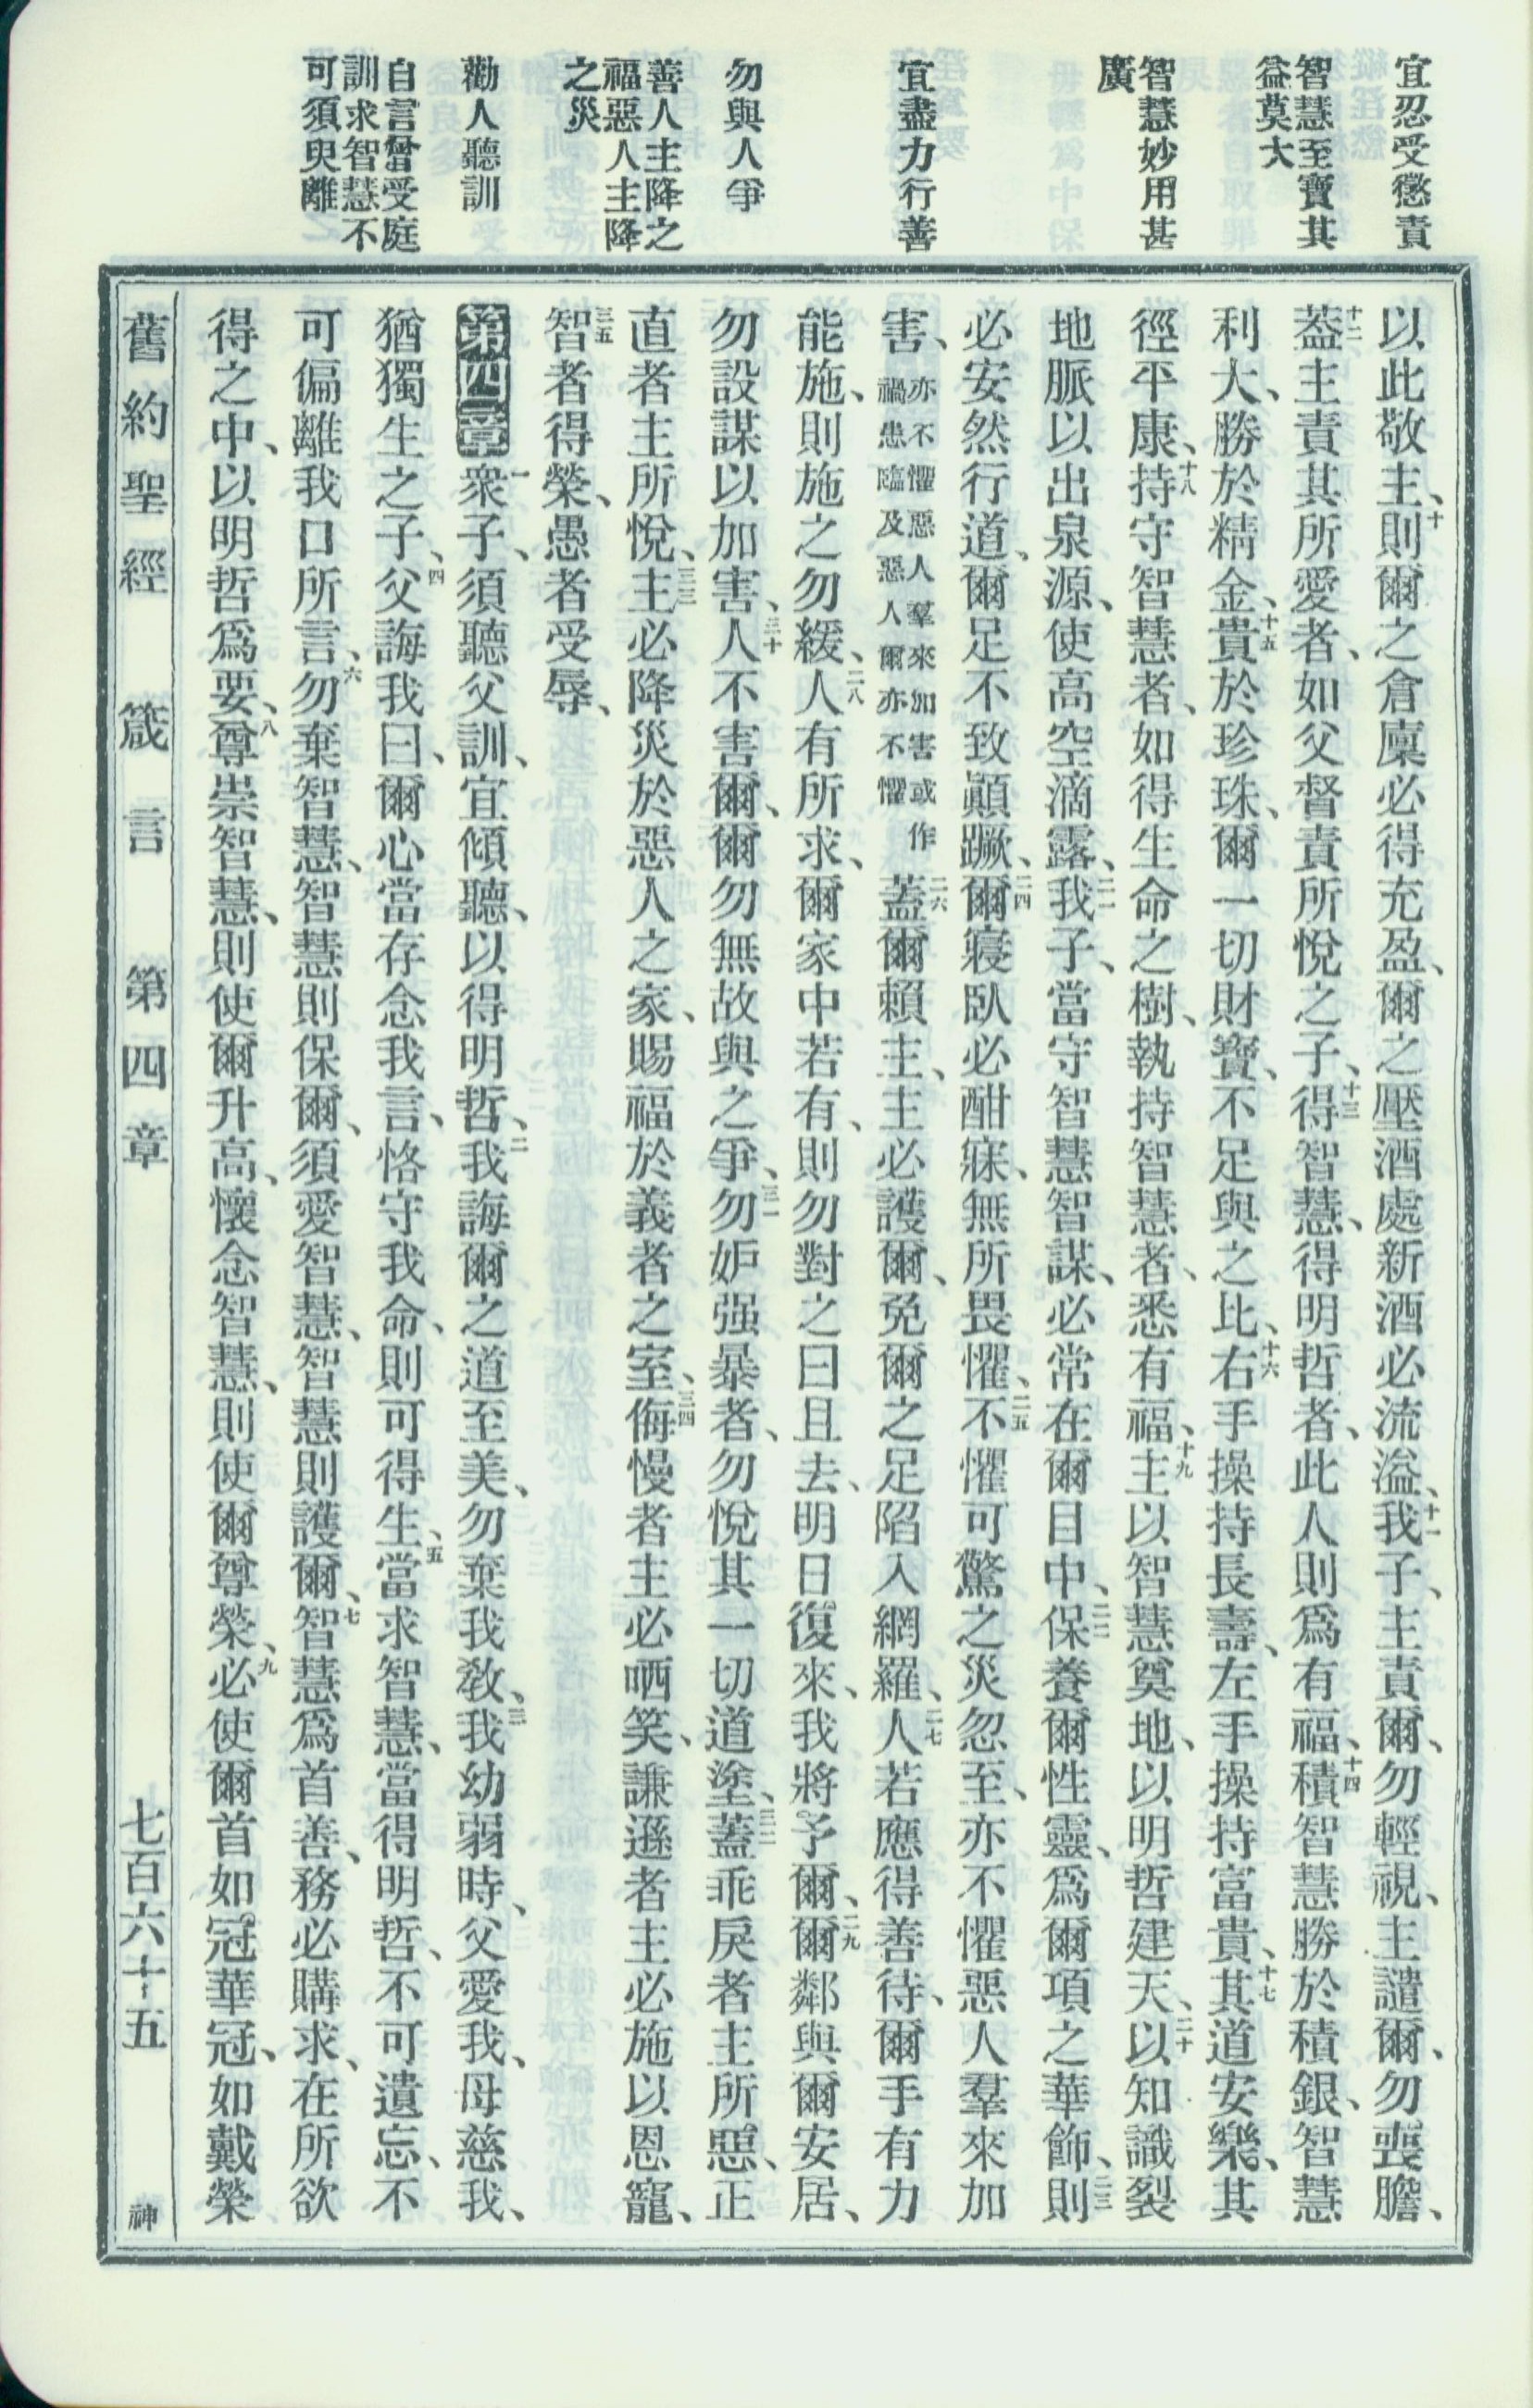 宜忍受懲責
智慧至寶其
益莫大
智慧妙用甚
廣
宜盡力行善
勿與人爭
善人主降之
福惡人主降
之災
勸人聽訓
自言曾受庭
訓求智慧不
可須臾離
以此敬主、十則爾之倉廩必得充盈、爾之壓酒處新酒必流溢、十一我子、主責爾、勿輕視、主譴爾、勿喪膽、
十二蓋主責其所愛者、如父督責所悅之子、十三得智慧、得明哲者、此人則爲有福、十四積智慧勝於積銀、智慧
利大、勝於精金、十五貴於珍珠、爾一切財寶、不足與之比、十六右手操持長壽、左手操持富貴、十七其道安樂、其
徑平康、十八持守智慧者、如得生命之樹、執持智慧者、悉有福、十九主以智慧奠地、以明哲建天、二十以知識裂
地脈以出泉源、使高空滴露、二一我子、當守智慧智謀、必常在爾目中、二二保養爾性靈、爲爾項之華飾、二三則
必安然行道、爾足不致顚蹶、二四爾寢臥必酣寐、無所畏懼、二五不懼可驚之災忽至、亦不懼惡人羣來加
害、亦不懼惡人羣來加害或作禍患臨及惡人爾亦不懼二六蓋爾賴主、主必護爾、免爾之足陷入網羅、二七人若應得善待、爾手有力
能施、則施之勿緩、二八人有所求、爾家中若有、則勿對之曰且去、明日復來、我將予爾、二九爾鄰與爾安居、
勿設謀以加害、三十人不害爾、爾勿無故與之爭、三一勿妒强暴者、勿悅其一切道塗、三二蓋乖戾者主所惡、正
直者主所悅、三三主必降災於惡人之家、賜福於義者之室、三四侮慢者主必哂笑、謙遜者主必施以恩寵、
三五智者得榮、愚者受辱、
第四章一衆子、須聽父訓、宜傾聽、以得明哲、二我誨爾之道至美、勿棄我敎、三我幼弱時、父愛我、母慈我、
猶獨生之子、四父誨我曰、爾心當存念我言、恪守我命、則可得生、五當求智慧、當得明哲、不可遺忘、不
可偏離我口所言、六勿棄智慧、智慧則保爾、須愛智慧、智慧則護爾、七智慧爲首善、務必購求、在所欲
得之中、以明哲爲要、八尊崇智慧、則使爾升高、懷念智慧、則使爾尊榮、九必使爾首如冠華冠、如戴榮
舊約聖經 箴言 第四章 七百六十五 神